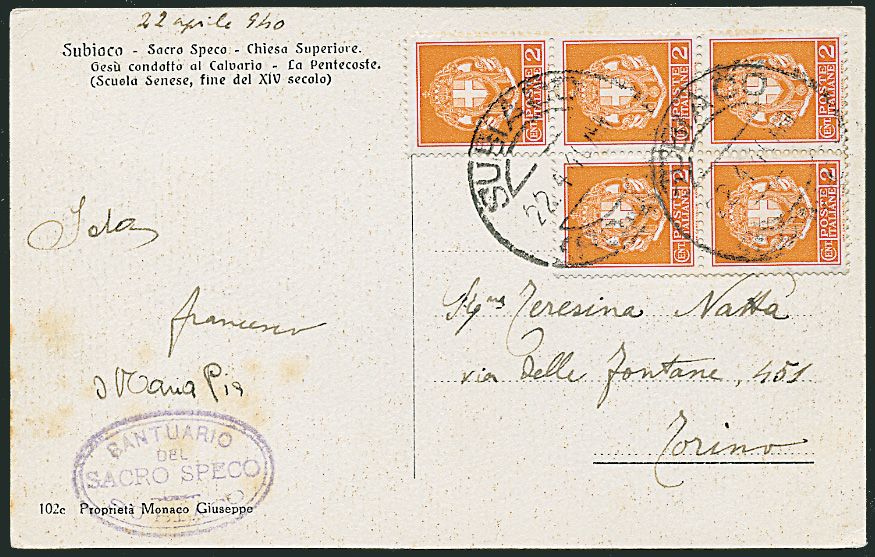 22 aprile 940
Subiaco - Sacro Speco - Chiesa Superiore.
Gesù condotto al Calvario - La Pentecoste.
(Scuola Senese, fine del XIV secolo)
POSTE ITALIANE CENT 2
POSTE ITALIANE CENT 2
POSTE ITALIANE CENT 2
POSTE ITALIANE CENT 2
POSTE ITALIANE CENT 2
SUBIACO
22.4.40
SUBIACO
22.4
Ida
francesco
Maria Pia
Teresina Natta
via delle Fontane, 451
Torino
SANTUARIO
DEL
SACRO SPECO
SUBIACO
102c Proprietà Monaco Giuseppe